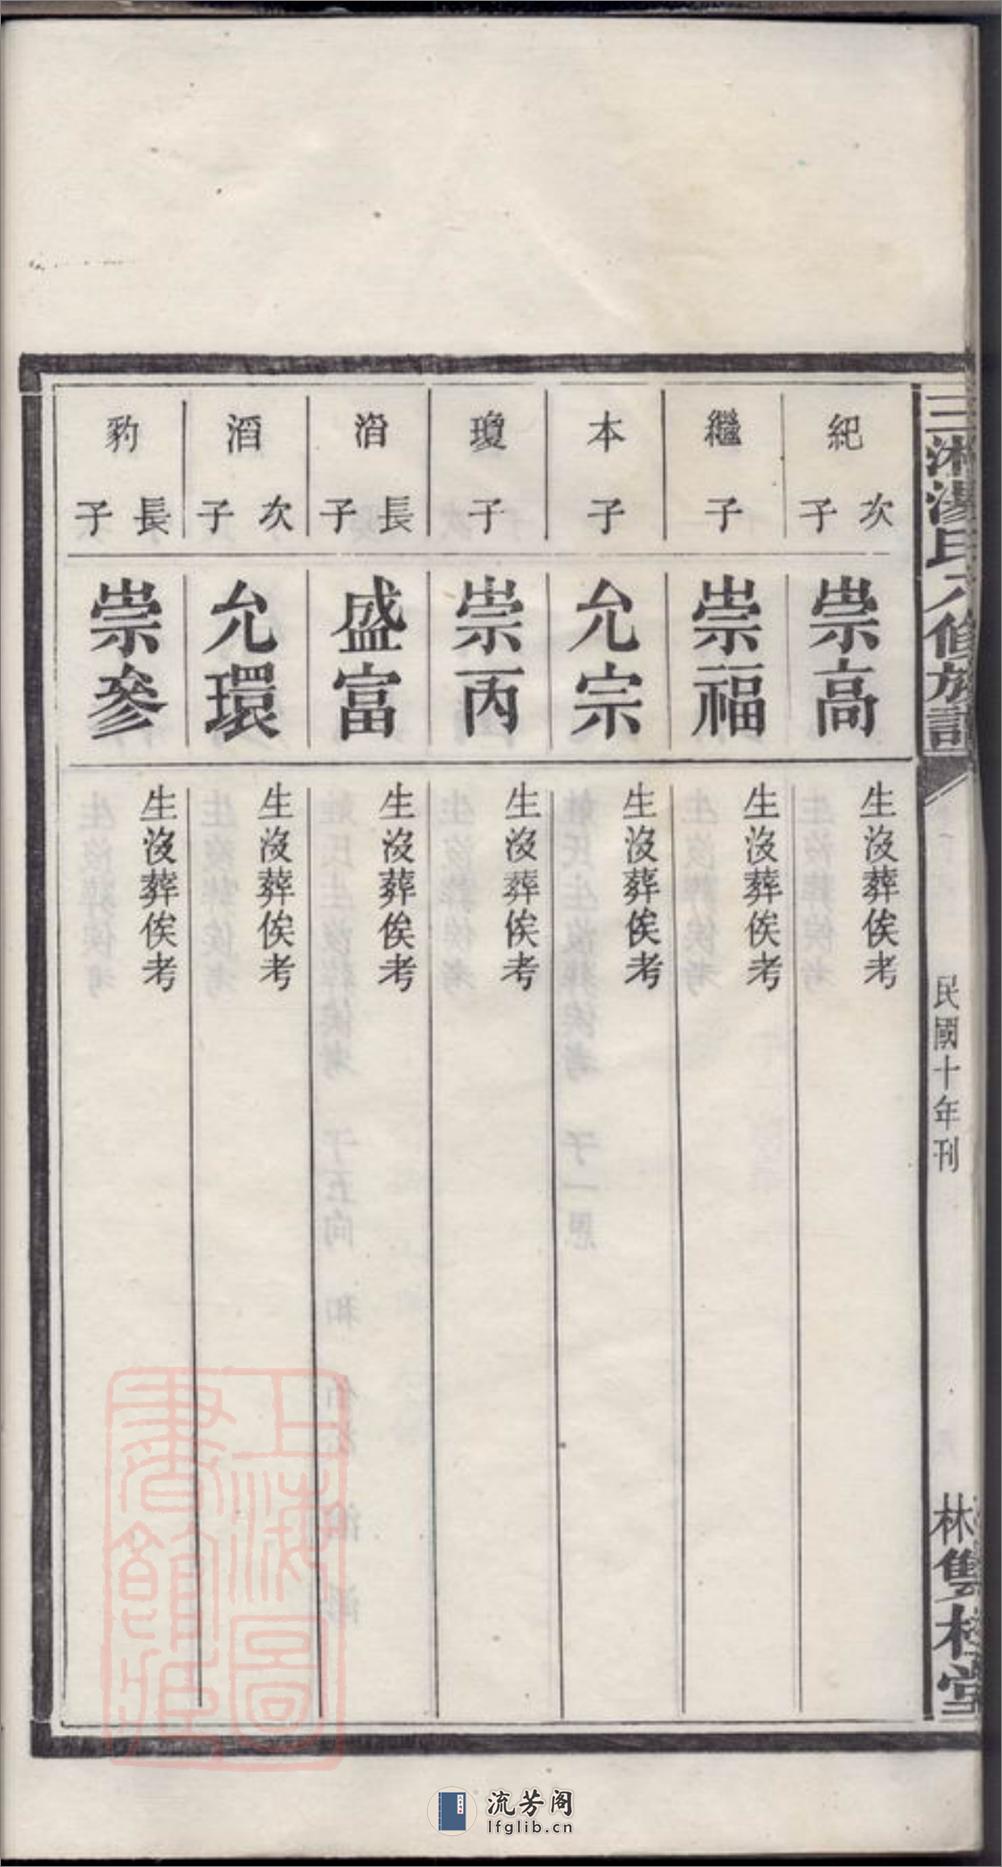 三湘湯氏六修族譜
民國十年刊
林雙桂堂
紀
次子
崇高
生沒葬俟考
繼
子
崇福
生沒葬俟考
本
子
允宗
生沒葬俟考
瓊
子
崇丙
生沒葬俟考
長子
盛富
生沒葬俟考
次子
允環
生沒葬俟考
豹
長子
崇參
生沒葬俟考
上海圖書館藏
流芳阁
lfglib.cn